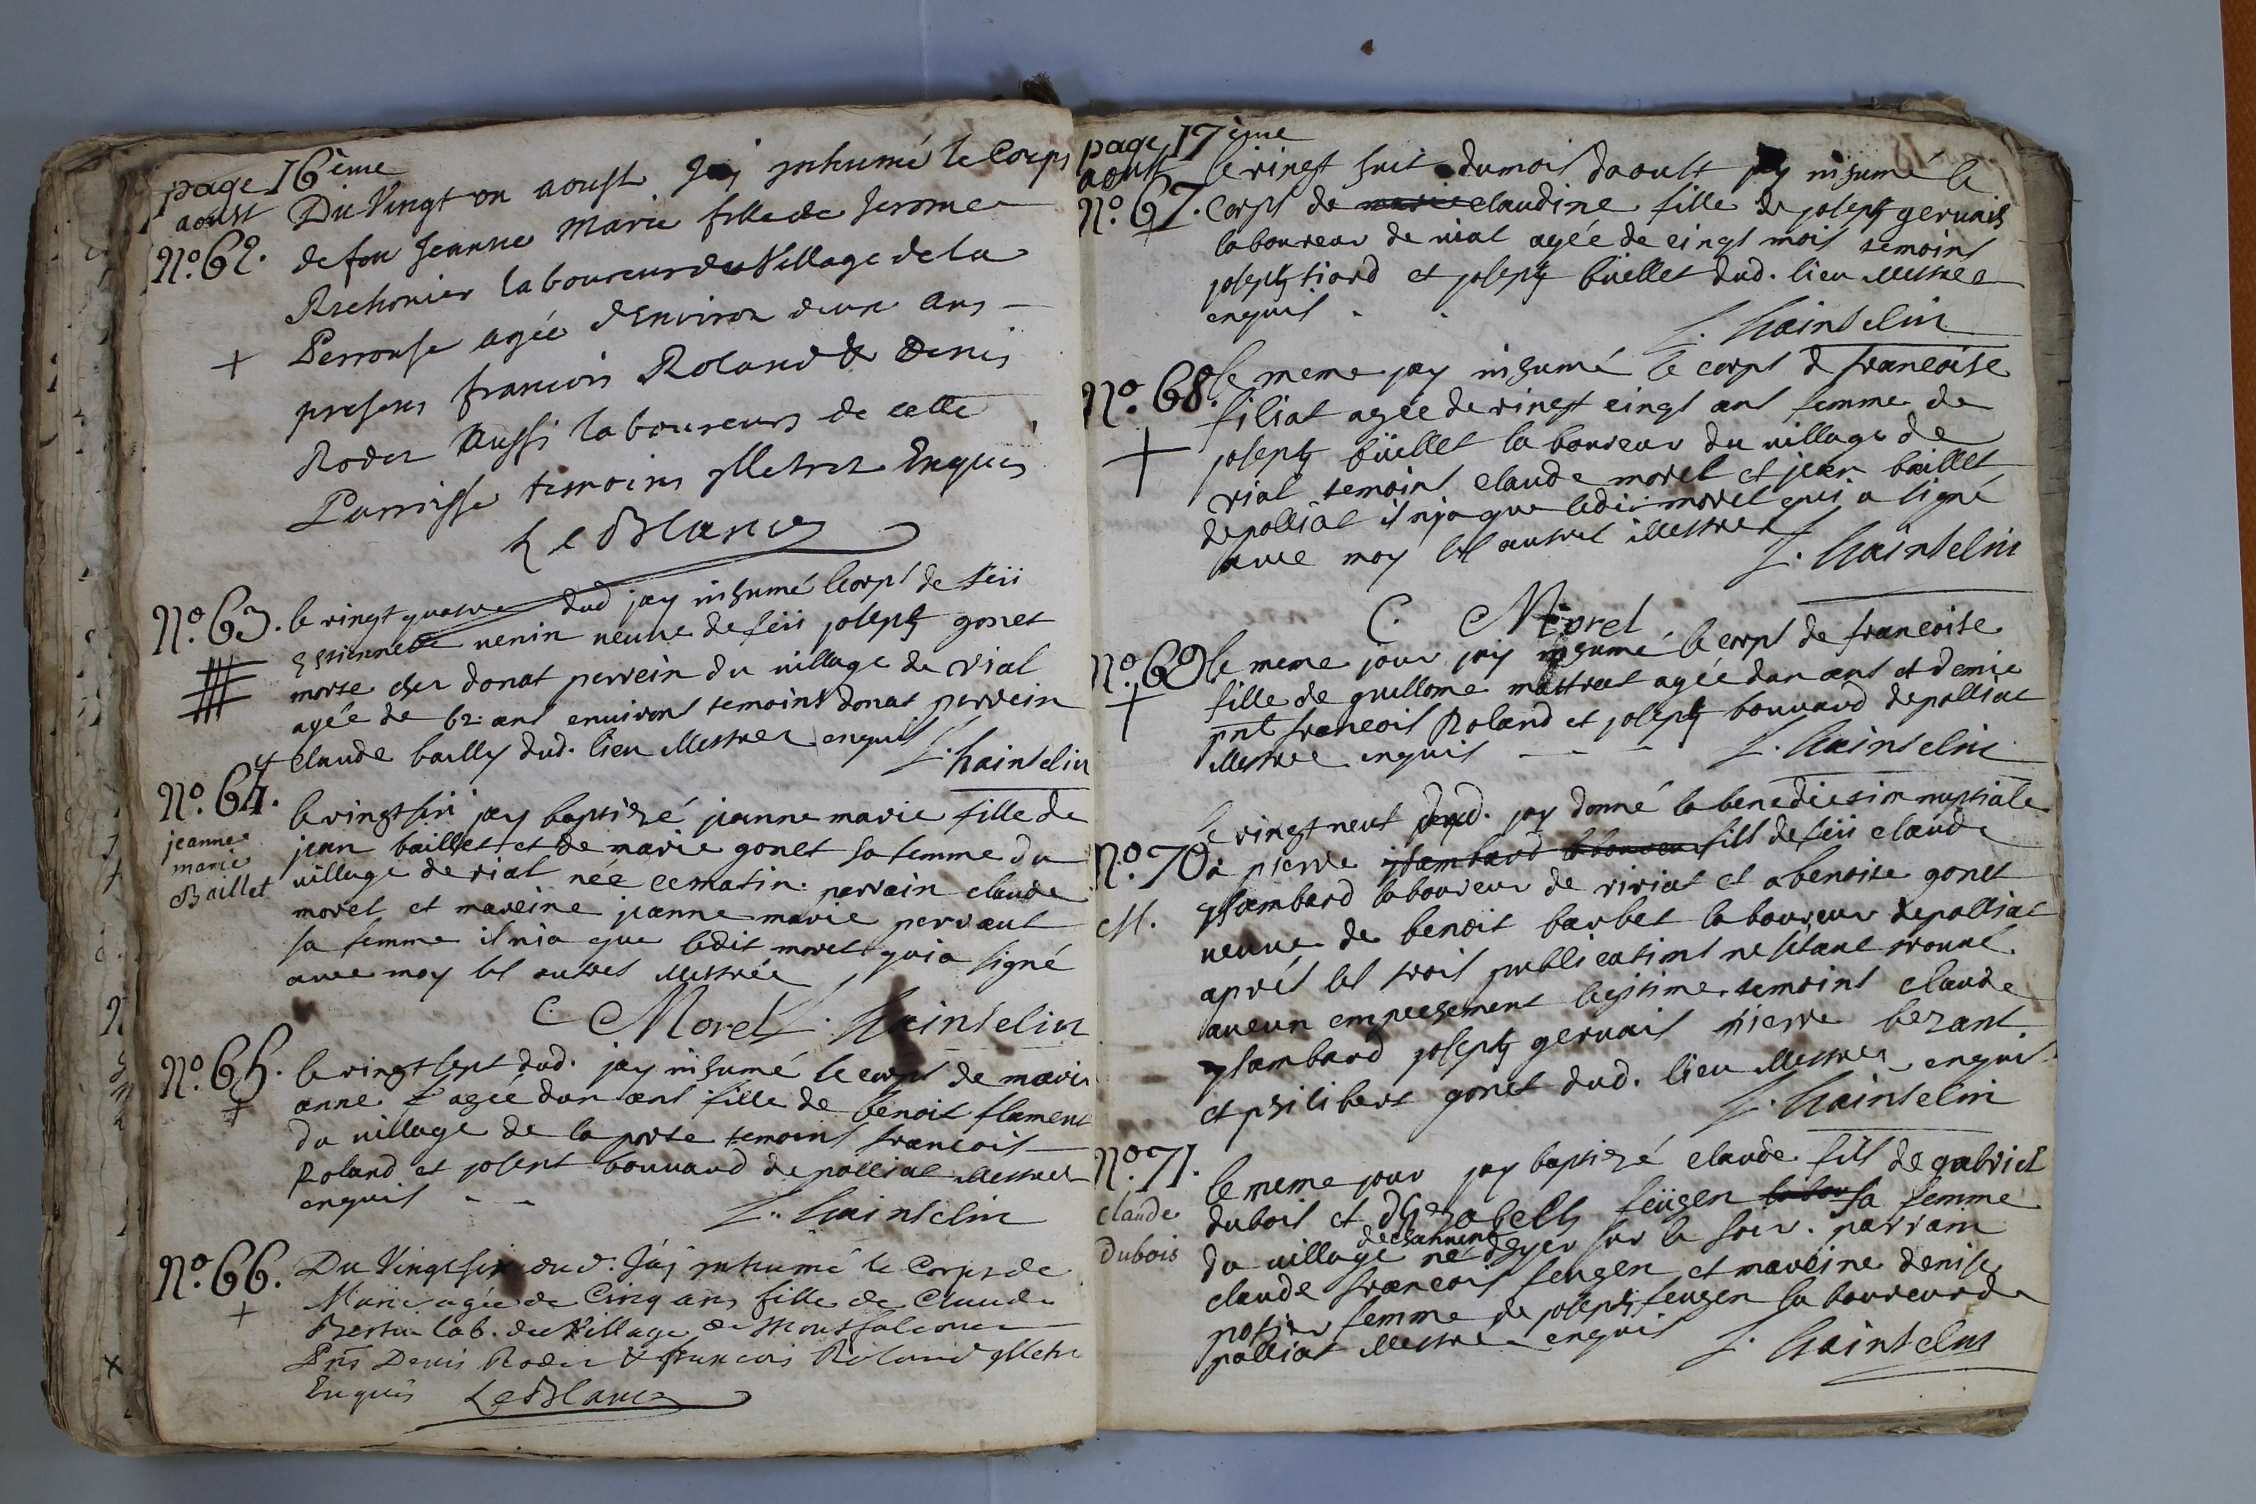 page 16ème
aoust Du Vingt un aoust Jaj inhumé le Corps
No. 62. de feu Jeanne Marie fille de Jerome
laboureur du Village de la
+ Perrouse agée d'Environ deux ans
presens francois Roland & Denis
Roder Aussi laboureurs de cette
Parroisse temoins jlletrez Enquis
LeBlanc
No. 63. le vingt quatre dud jay inhumé le corps de feü
Estiennette venin veuve de feü joseph gonet
morte cher donat perrein du village de vial
agée de 62 ans environs temoins donat perrein
et claude bailly dud. lieu illestrez enquis
L. hainselin
No. 64.
le vingt six jay baptizé jeanne marie fille de
jeanne
marie
Baillet
jean baillet et de marie gonet sa femme du
village de vial née ce matin. parrain claude
morel et mareine jeanne marie perraut
sa femme il nia que ledit morel qui a signé
avec moy les autres illestrée
C. Morel L. hainselin
No. 65. le vingt sept dud. jay inhumé le corps de marie
+ anne agée dun ans fille de benoit flament
du village de la porte temoins francois
Roland et joseph bouvard de polliat illestrez
enquis - -
L. hainselin
No. 66. Du Vingt six dud. Jaj inhumé le Corps de
+ Marie agée de Cinq ans fille de Claude
lab. du Village de Montfalcone
Pnts Denis Roder & francois Roland jlletre
Enquis LeBlanc
page 17ème
aoust le vingt huit du mois daoust jay inhumé le
No. 67. corps de marie claudine fille de joseph gervais
laboureur de vial agée de cingt mois temoins
joseph tiord et joseph büellet dud. lieu illestree
enquis
L. hainselin
No. 68. le meme jay inhumé le corps d francoise
filiat agée de vingt cingt ans femme de
+ joseph büellet laboureur du village de
vial temoins claude morel et jean baillet
de polliat il nja que ledit morel qui a signé
avec moy les autres illestrez
L. hainselin
C. Morel
No. 69 le meme jour jay inhumé le corps de francoise
+ fille de guillome mattraet agée dun ans et demie
pnt francois Roland et joseph bouvard de polliat
illestree enquis - - -
L. hainselin
le vingt neuf dud. jay donné la benediction nuptiale
No. 70 a pierre jsambard laboureur fils de feü claude
M. jsambard laboureur de viriat et a benoite gonet
veuve de benoit barbet laboureur de polliat
aprés les trois publications ne sestant trouvé
aucun empechement legitime. temoins claude
jsambard joseph gervais pierre bezant
et philibert gonet dud. lieu illestrez enquis
L. hainselin
No. 71.
le meme jour jay baptizé claude fils de gabriel
claude
dubois
dubois et feügen sa femme
du village né hyer sur le soir. parrain
claude francois feugen et mareine denise
potier femme de joseph feugen laboureur de
polliat illestre enquis
L. hainselin